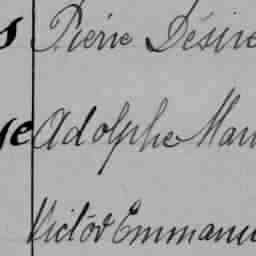 s Pierre Désire
ye Adolphe Mari
Victor Emmanue